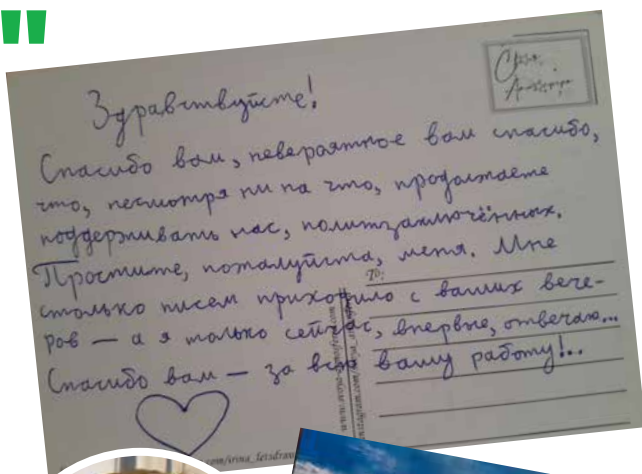 "
Здравствуйте!
Спасибо вам, невероятное вам спасибо,
что, несмотря ни на что, продолжаете
поддерживать нас, политзаключённых.
Простите, пожалуйста, меня. Мне
To:
столько писем приходило с ваших вече-
ров — а я только сейчас, впервые, отвечаю...
Спасибо вам — за всю вашу работу!..